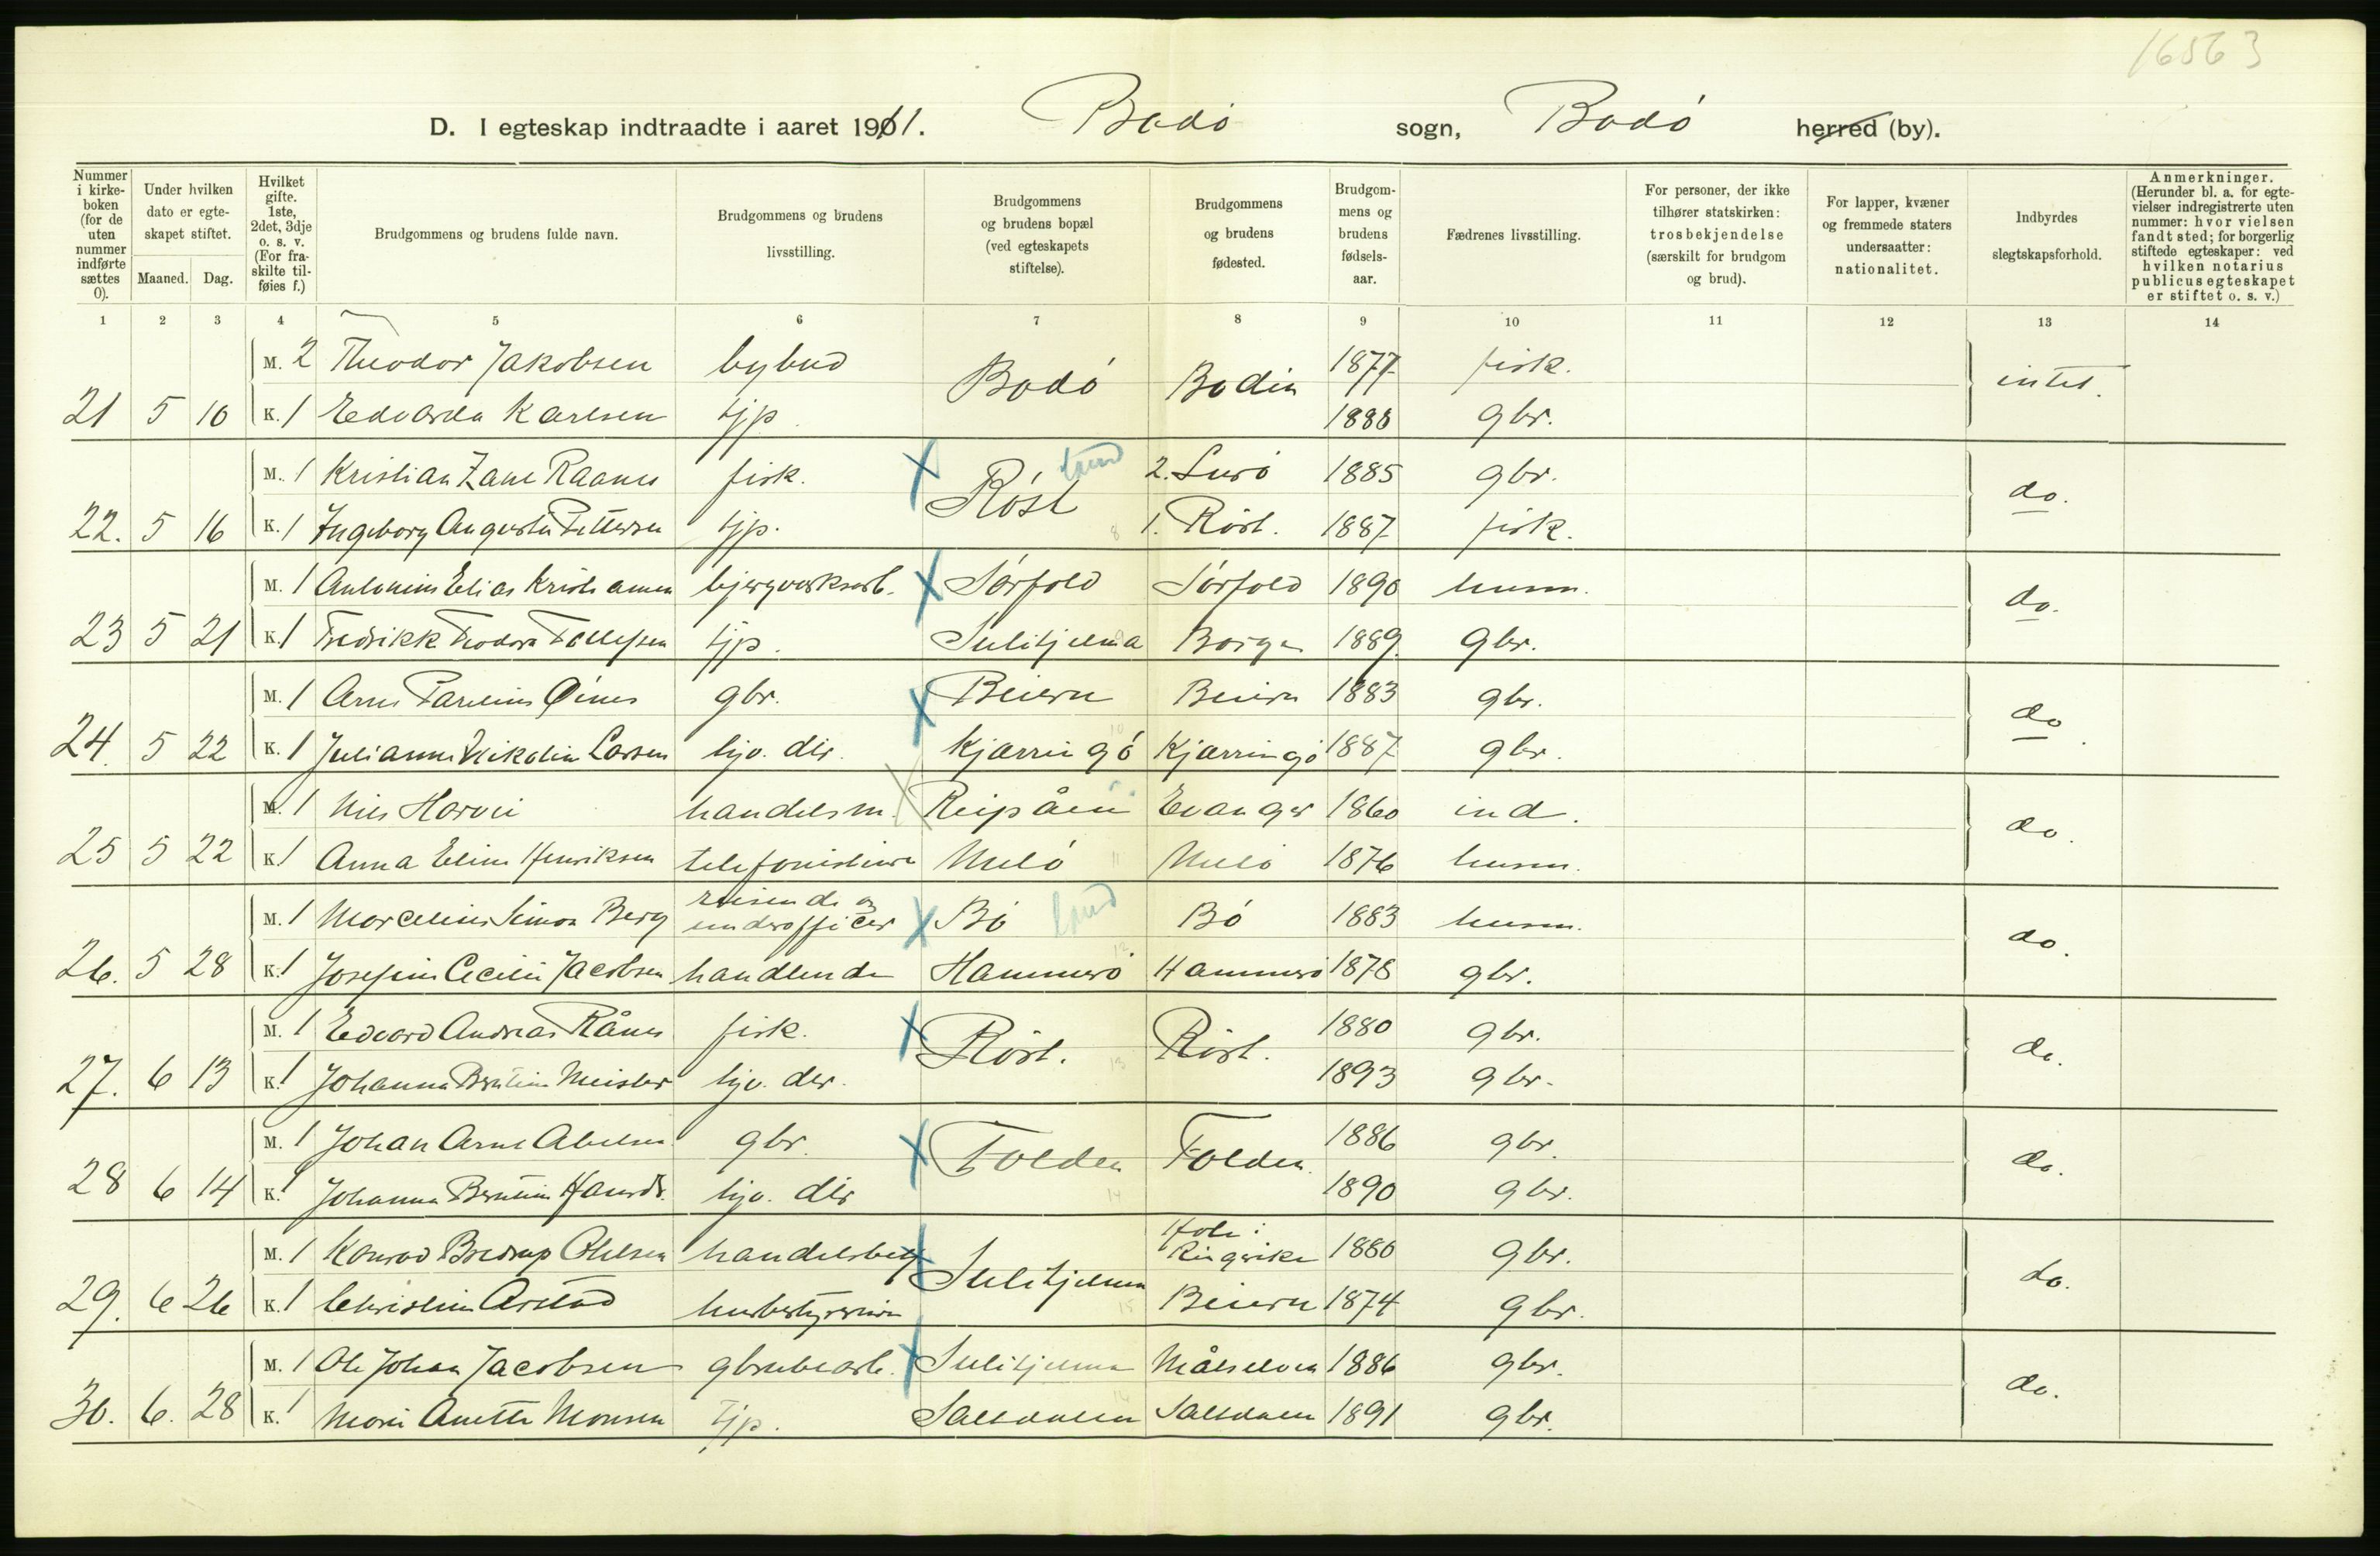 16563
D. I egteskap indtraadte i aaret 1911. Bodö sogn, Bodö herred (by).
Nummer i kirkeboken (for de uten nummer indførte sættes 0).
Under hvilken dato er egteskapet stiftet.
Maaned. Dag.
Hvilket gifte. 1ste, 2det, 3dje o. s. v. (For fraskilte tilføies f.)
Brudgommens og brudens fulde navn.
Brudgommens og brudens livsstilling.
Brudgommens og brudens bopæl (ved egteskapets stiftelse).
Brudgommens og brudens fødested.
Brudgommens og brudens fødselsaar.
Fædrenes livsstilling.
For personer, der ikke tilhører statskirken: trosbekjendelse (særskilt for brudgom og brud).
For lapper, kvæner og fremmede staters undersaatter: nationalitet.
Indbyrdes slegtskapsforhold.
Anmerkninger. (Herunder bl. a. for egtevielser indregistrerte uten nummer: hvor vielsen fandt sted; for borgerlig stiftede egteskaper: ved hvilken notarius publicus egteskapet er stiftet o. s. v.)
1 2 3 4 5 6 7 8 9 10 11 12 13 14
M. 2 Theodor Jakobsen bybud Bodö Bodin 1877 fisk. intet.
21 5 10 K. 1 Edvarda Karlsen tjp. 1888 gbr.
M. 1 Kristian Zane Raanes fisk. Röst 2. Lurö 1885 gbr. do.
22. 5 16 K. 1 Ingeborg Augusta Pettersen tjp. 1. Röst. 1887 fisk.
M. 1 Antonius Elias Kristiansen bjergverksarb. Sörfold Sörfold 1890 husm. do.
23 5 21 K. 1 Fredrikk Teodora Tollefsen tjp. Sulitjelma Borge 1889 gbr.
M. 1 Arne Parelius Öines gbr. Beiern Beiern 1883 gbr. do.
24. 5 22 K. 1 Julianne Nikoline Larsen hjv. dtr. Kjærringö Kjærringö 1887 gbr.
M. 1 Nils Horvei handelsm. Reipåen Evanger 1860 ind. do.
25 5 22 K. 1 Anna Eline Henriksen telefonistinne Melö Melö 1876 husm.
M. 1 Marcelius Simon Berg reisende og underofficer Bö Bö 1883 husm. do.
26. 5 28 K. 1 Josefine Cecilie Jacobsen handlende Hammerö Hammerö 1878 gbr.
M. 1 Edvard Andreas Rånes fisk. Röst. Röst. 1880 gbr. do.
27. 6 13 K. 1 Johanna Bertine Meister hjv. dtr. 1893 gbr.
M. 1 Johan Arne Abelsen gbr. Folden Folden 1886 gbr. do.
28 6 14 K. 1 Johanna Berntine Hansdr. hjv. dtr 1890 gbr.
M. 1 Konrad Bredrup Olilsen handelsbetj Sulitjelma Hole i Ringerike 1880 gbr. do.
29. 6 26 K. 1 Christine Arstad husbestyrerinne Beiern 1874 gbr.
M. 1 Ole Johan Jacobsen grubearb. Sulitjelma Målselven 1886 gbr. do.
30. 6. 28 K. 1 Marie Anette Monsen tjp. Saltdalen Saltdalen 1891 gbr.